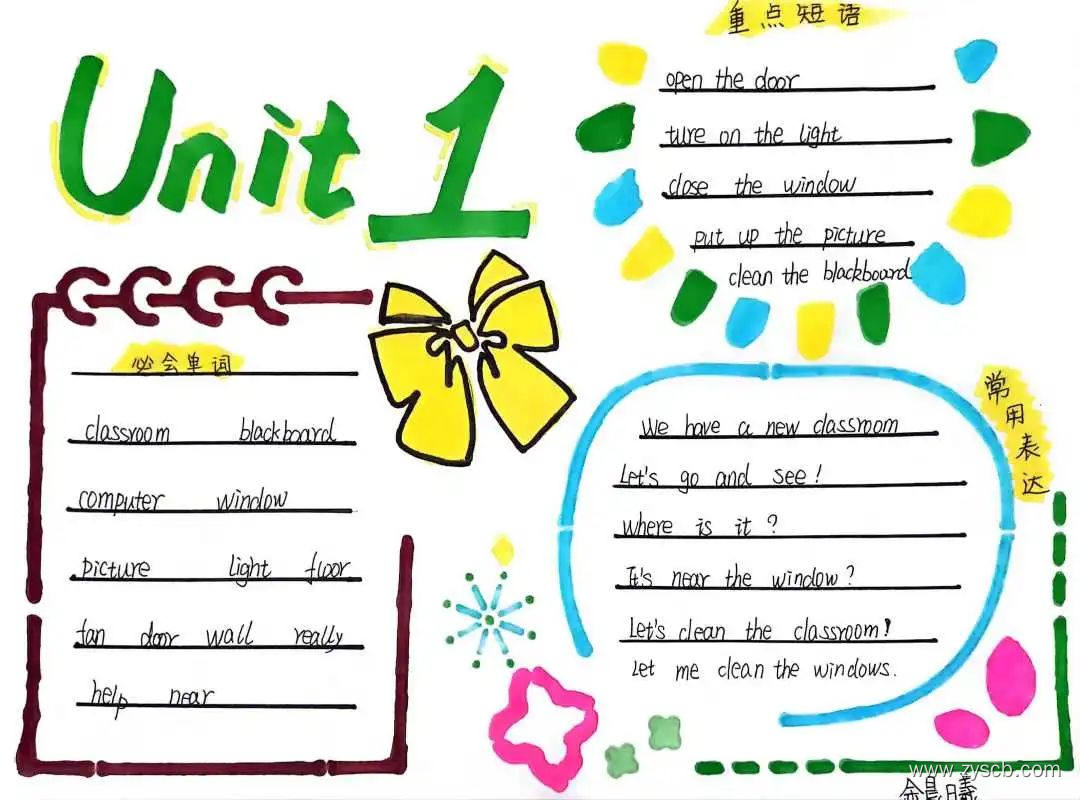 Unit 1
必会单词
classroom blackboard
computer window
picture light floor
fan door wall really
help near
重点短语
open the door
ture on the light
close the window
put up the picture
clean the blackboard
常用表达
We have a new classroom
Let's go and see!
where is it ?
It's near the window?
Let's clean the classroom!
Let me clean the windows.
www.zyscb.com